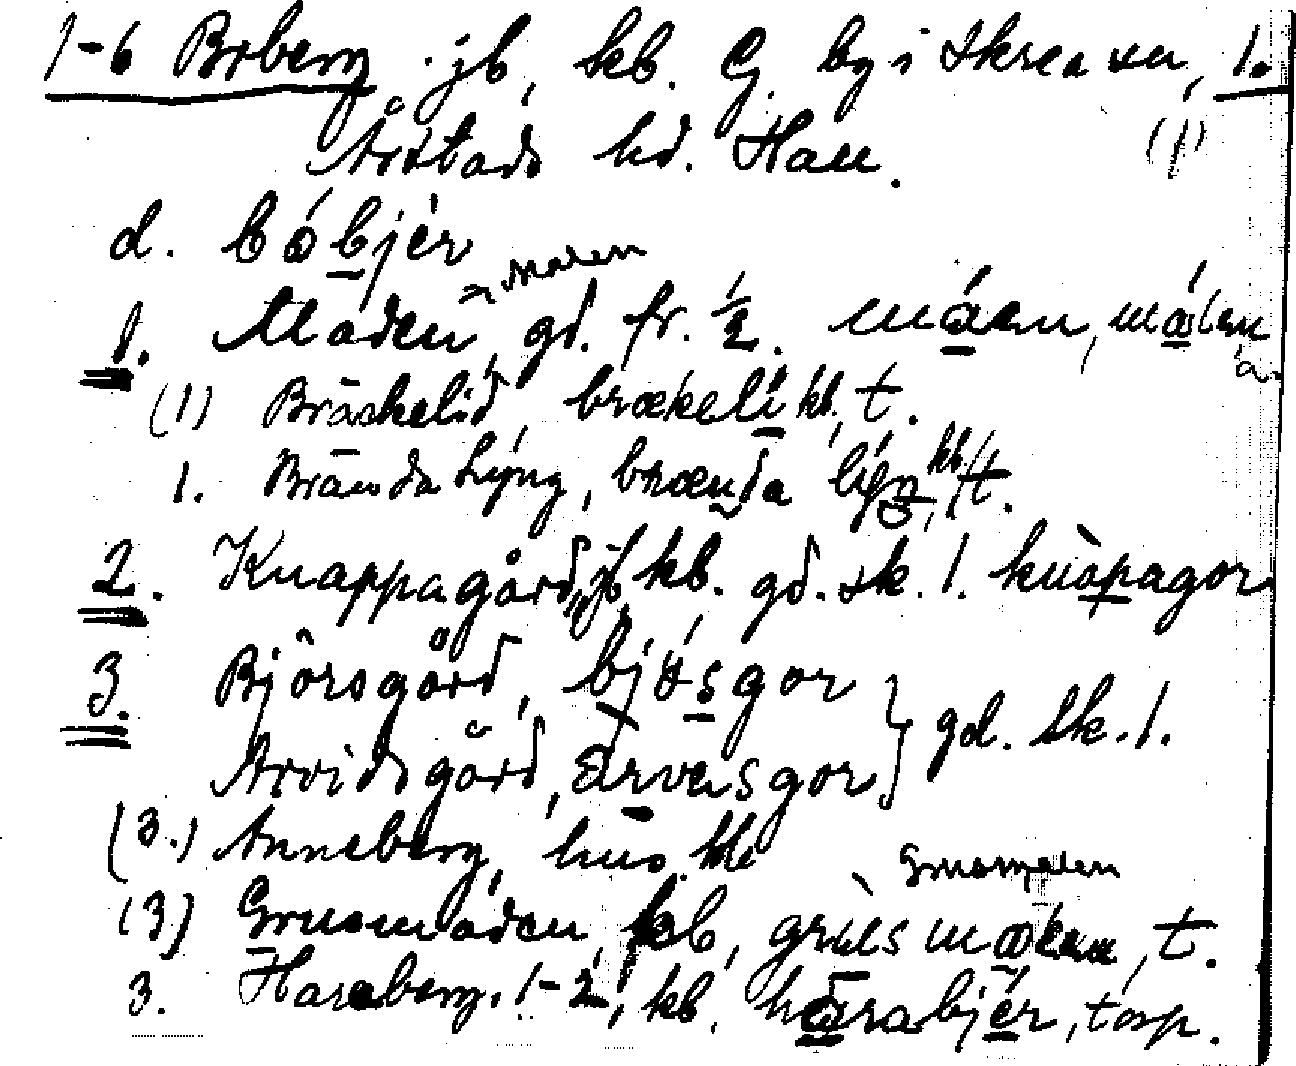 1-6 Boberg jb, kb. G. by i Skrea sn, 1.
Årstads hd. Hall. (1)
d. bóbjèr
Malen
1. Maden, gd. fr. ½. máen, málen
(1) Bräckelid, brækeli kb, t.
1. Brända Lyng, brænda lýŋ kb, t.
2. Knappagård, jb, kb. gd. sk. 1. knàpagor
3. Björsgård, bjǿsgor
Arvidsgård, àrvasgor } gd. sk. 1.
(3.) Anneberg, hus.
Grusmalen
(3) Grusmaden, kb, grùsmaen, t.
3. Haraberg. 1-2, kb. harabjér, torp.